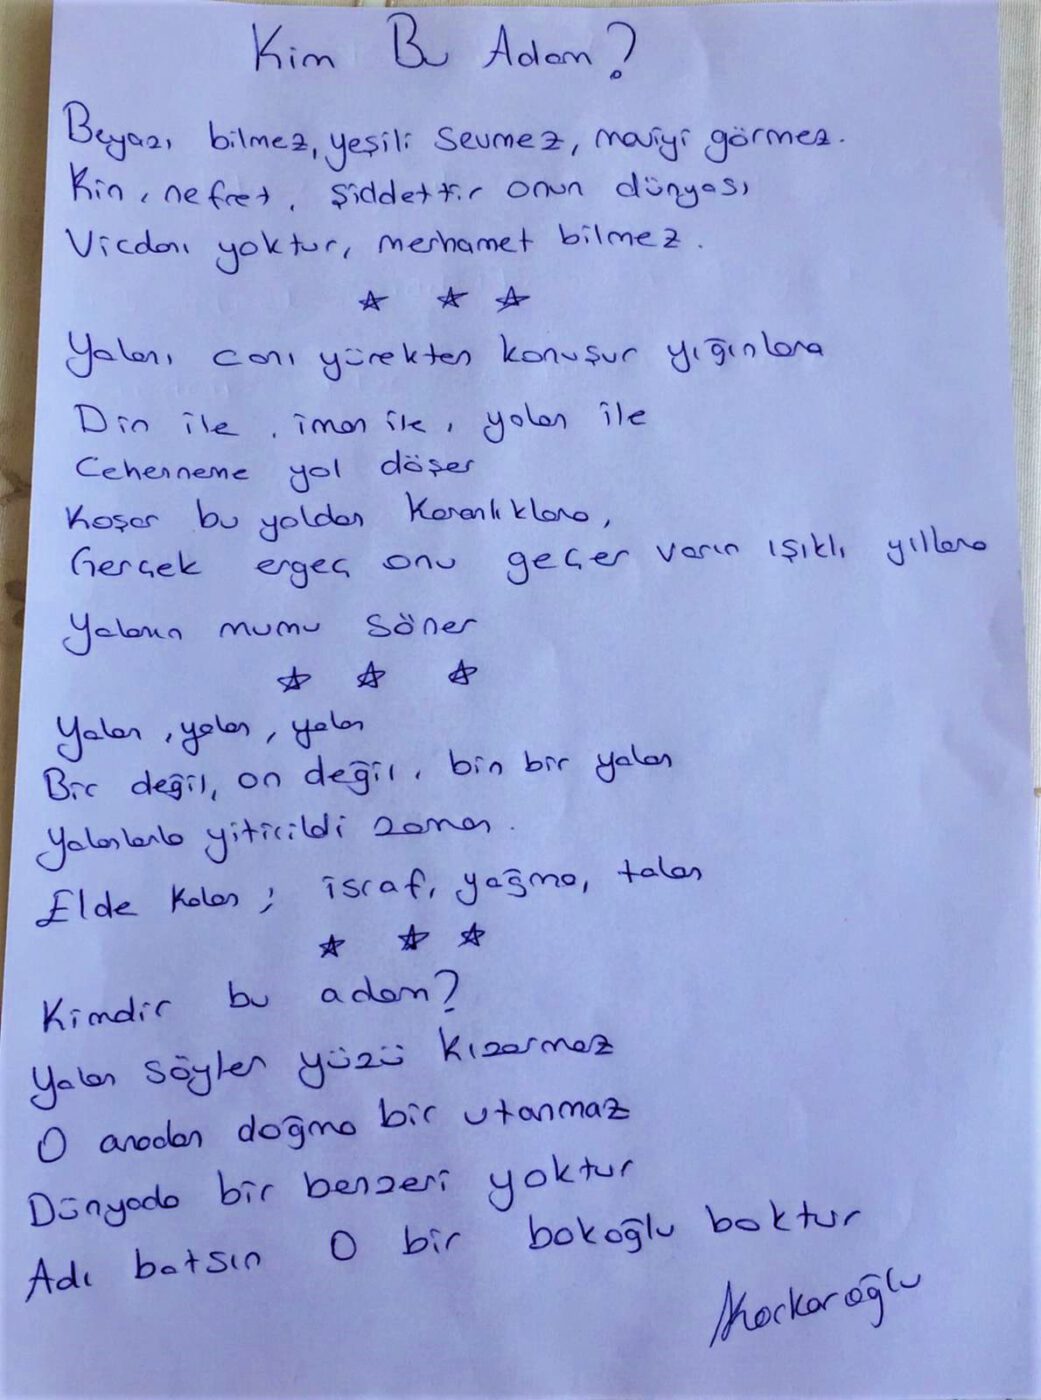 Kim Bu Adam?
Beyazı bilmez, yeşili sevmez, maviyi görmez.
Kin, nefret, şiddettir onun dünyası
Vicdanı yoktur, merhamet bilmez.
Yalanı canı yürekten konuşur yığınlara
Din ile, iman ile, yalan ile
Cehenneme yol döşer
Koşar bu yoldan Karanlıklara,
Gerçek ergeç onu geçer varın ışıklı yıllara
Yalanın mumu söner
Yalan, yalan, yalan
Bir değil, on değil, bin bir yalan
Yalanlarla yitirildi zaman.
Elde Kalan; israf, yağma, talan
Kimdir bu adam?
Yalan söyler yüzü kızarmaz
O anadan doğma bir utanmaz
Dünyada bir benzeri yoktur
Adı batsın O bir bokoğlu boktur